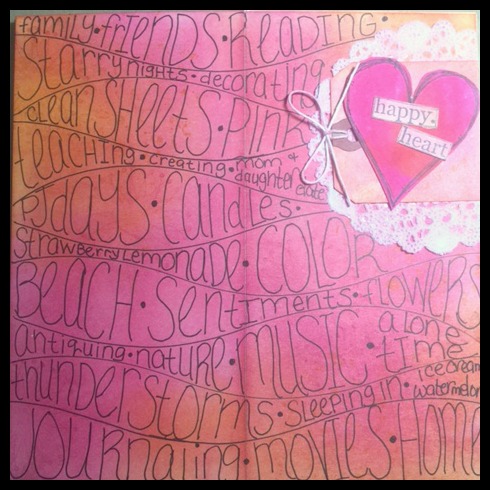 family • friends • Reading •
Starry nights • decorating
clean SHeets • Pink
teaching • creating • mom + daughter dates
PJ days • Candles •
Strawberry Lemonade • COLOR
BeacH • Sentiments • flowers
antiquing • nature • MUSIC • alone time
ice cream
thunderstorms • sleeping in • watermelon
JOURnaling • movies • Home
happy.
heart